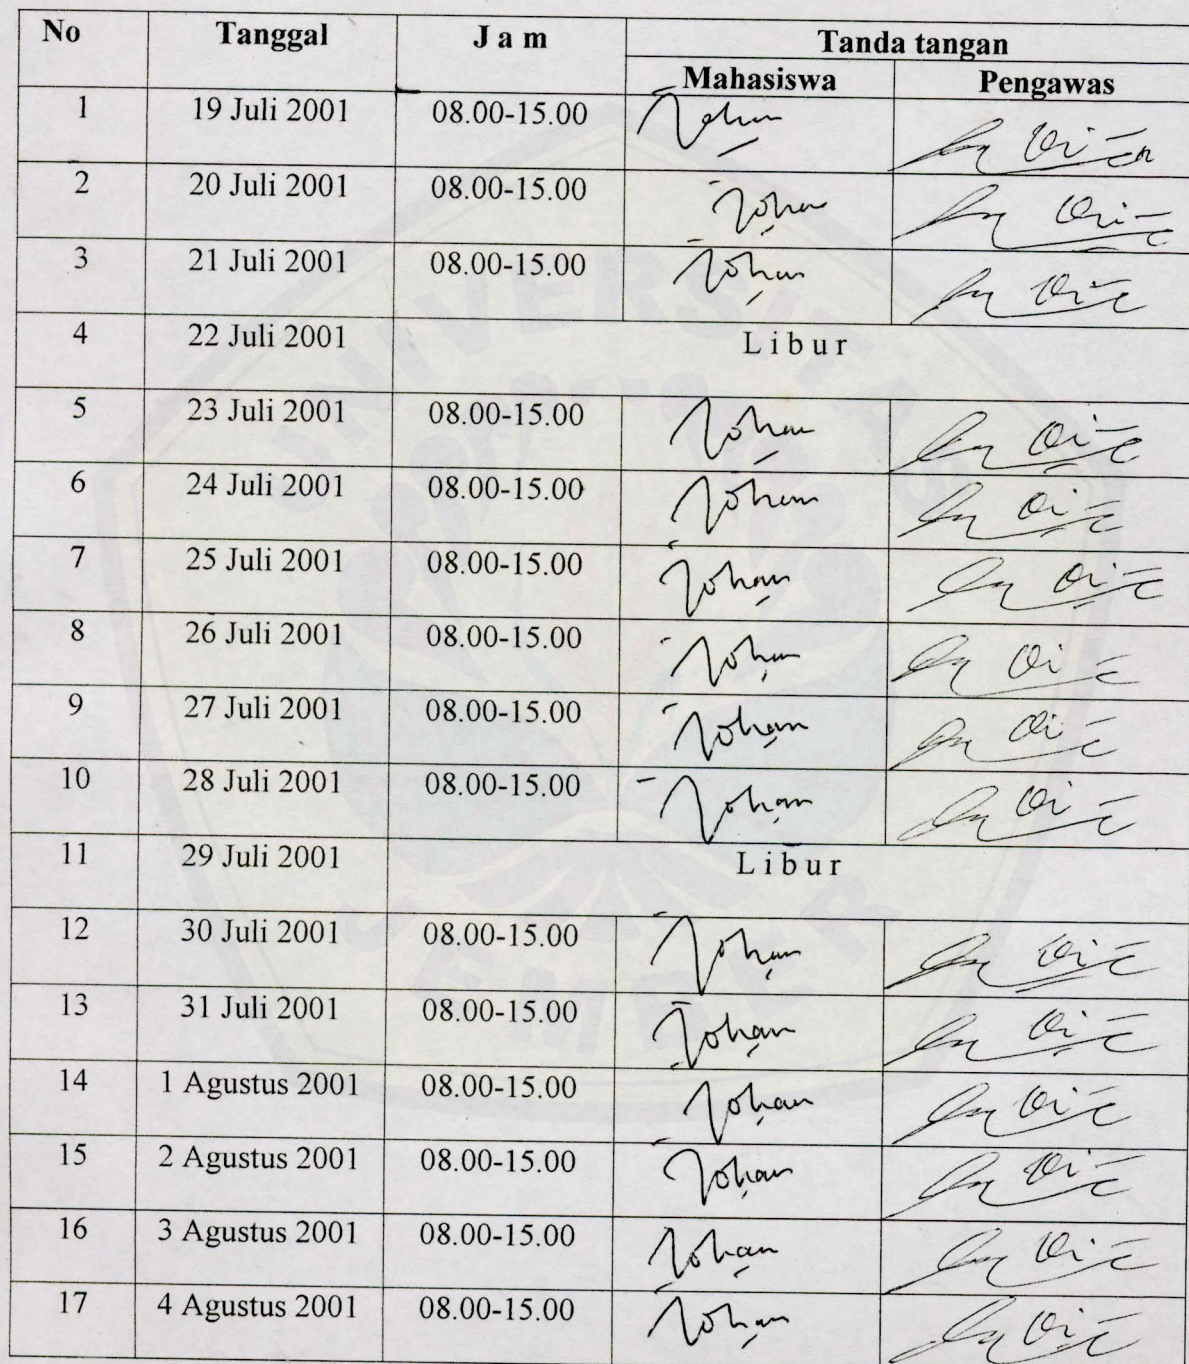 No Tanggal J a m Tanda tangan
Mahasiswa Pengawas
1 19 Juli 2001 08.00-15.00 Johan
2 20 Juli 2001 08.00-15.00 Johan
3 21 Juli 2001 08.00-15.00 Johan
4 22 Juli 2001 L i b u r
5 23 Juli 2001 08.00-15.00 Johan
6 24 Juli 2001 08.00-15.00 Johan
7 25 Juli 2001 08.00-15.00 Johan
8 26 Juli 2001 08.00-15.00 Johan
9 27 Juli 2001 08.00-15.00 Johan
10 28 Juli 2001 08.00-15.00 Johan
11 29 Juli 2001 L i b u r
12 30 Juli 2001 08.00-15.00 Johan
13 31 Juli 2001 08.00-15.00 Johan
14 1 Agustus 2001 08.00-15.00 Johan
15 2 Agustus 2001 08.00-15.00 Johan
16 3 Agustus 2001 08.00-15.00 Johan
17 4 Agustus 2001 08.00-15.00 Johan
UNIVERSITAS
JEMBER